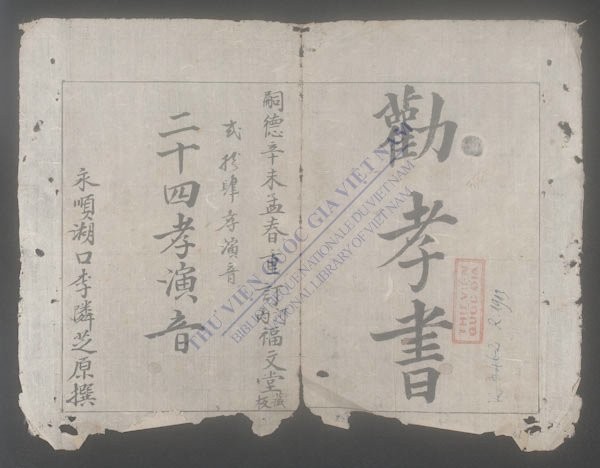 勸孝書
嗣德辛未孟春重 福文堂藏板
弍拾肆孝演音
二十四孝演音
永順湖口李隣芝原撰
THƯ VIỆN
QUỐC GIA
THƯ VIỆN QUỐC GIA VIỆT NAM
BIBLIOTHÈQUE NATIONALE DU VIETNAM
NATIONAL LIBRARY OF VIETNAM